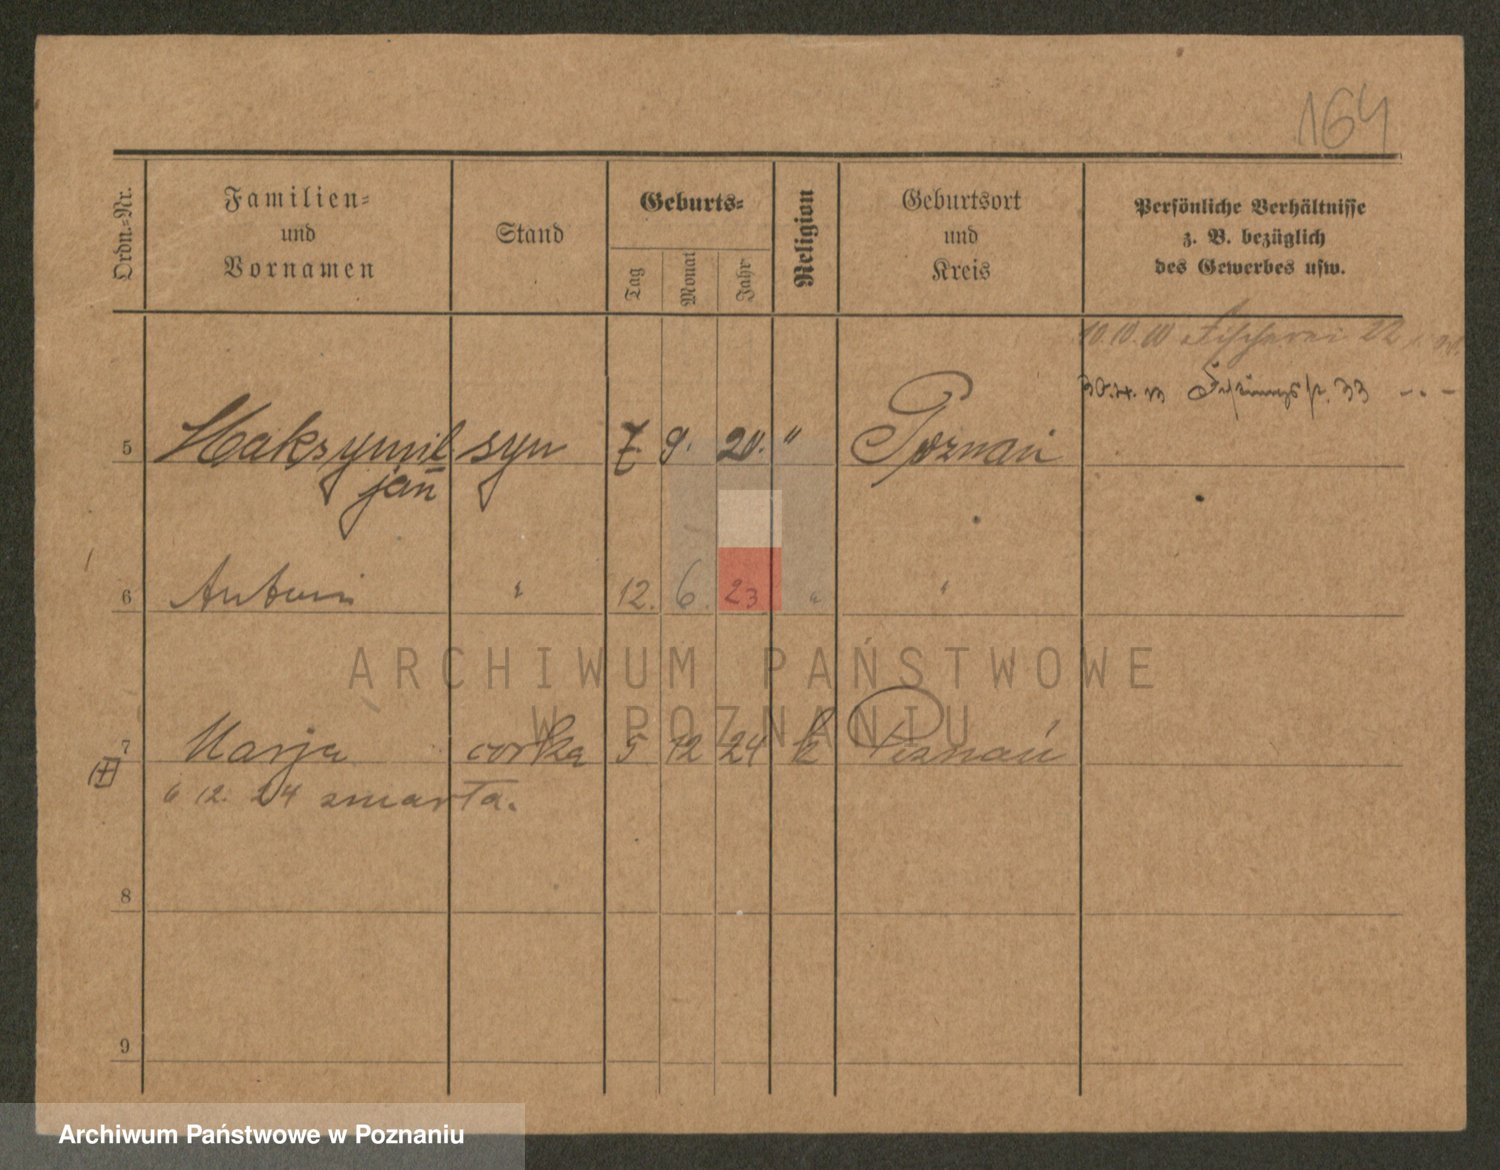 164
Ordn.-Nr.
Familien-
und
Vornamen
Stand
Geburts-
Tag
Monat
Jahr
Religion
Geburtsort
und
Kreis
Persönliche Verhältnisse
z. B. bezüglich
des Gewerbes usw.
10.10.00 Fischerei 22
33
5 Maksymil syn 7. 9. 20. " Poznań
jan
6 Antoni " 12. 6. 23 " "
ARCHIWUM PAŃSTWOWE
W POZNANIU
7 Marja corka 5 12 24 k Poznań
6 12. 24 zmarła.
8
9
Archiwum Państwowe w Poznaniu